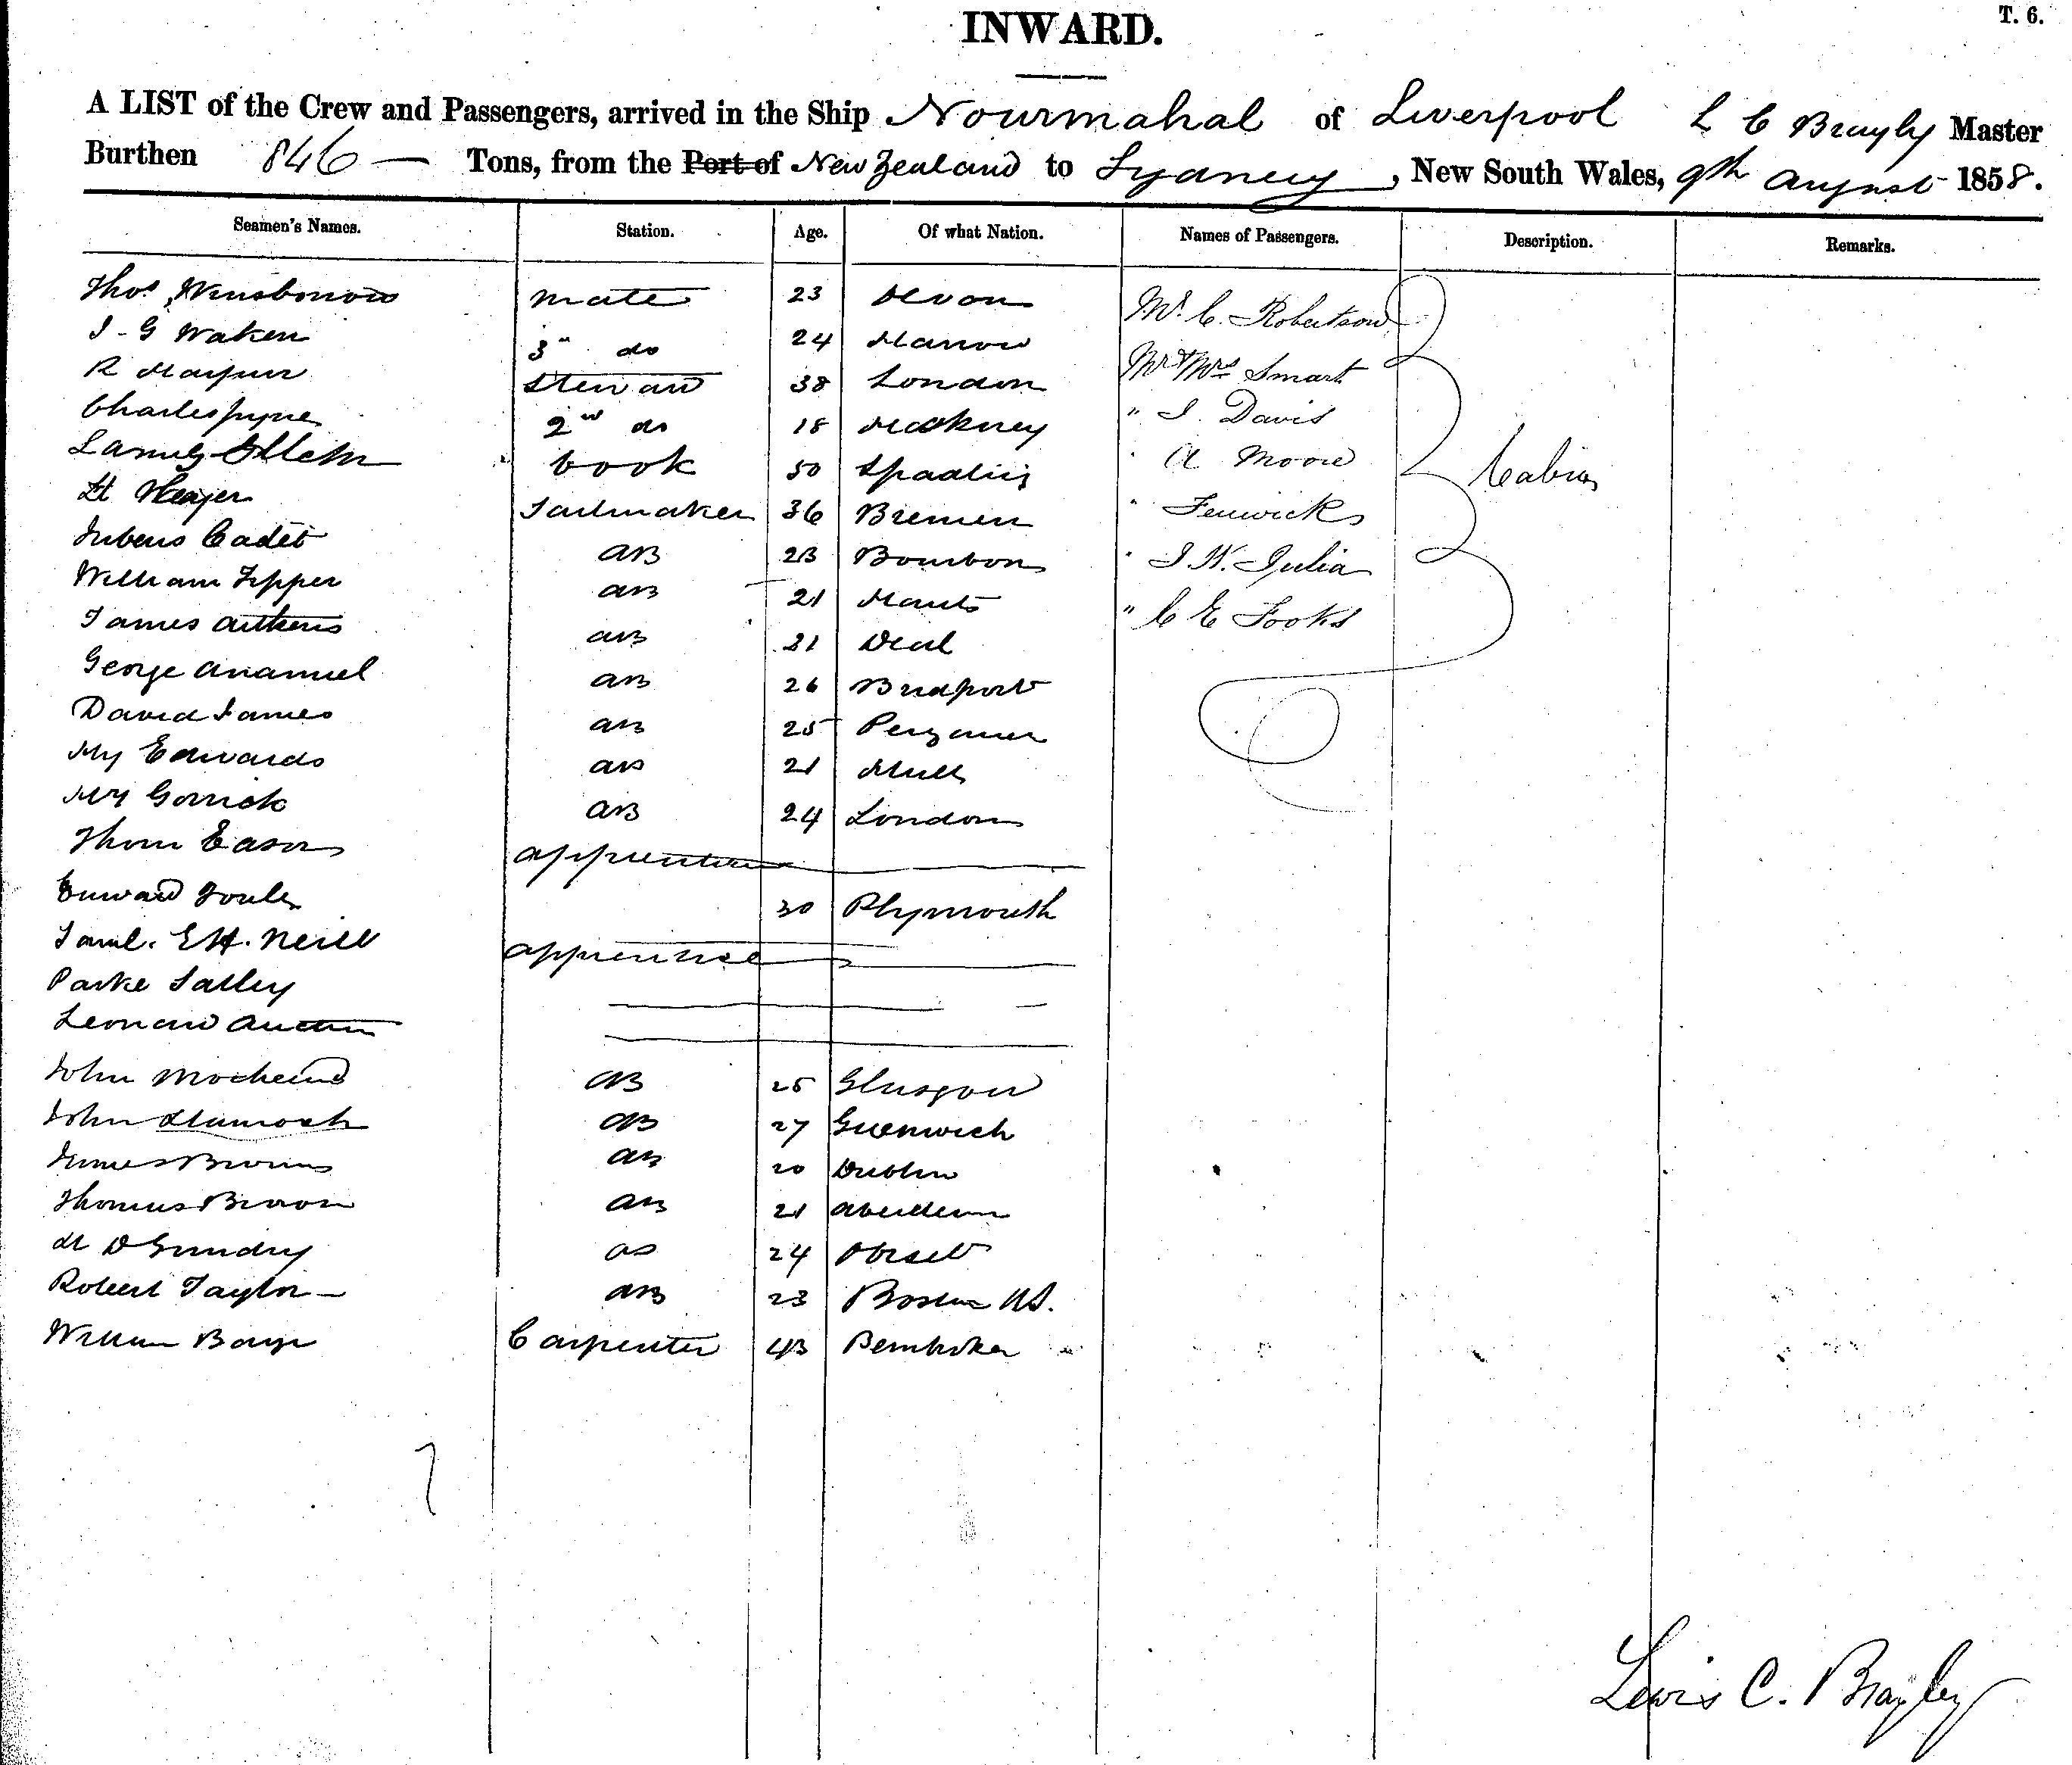 T. 6.
INWARD.
A LIST of the Crew and Passengers, arrived in the Ship Nourmahal of Liverpool L C Brayly Master
Burthen 846 — Tons, from the Port of New Zealand to Sydney, New South Wales, 9th August 1858.
Seamen's Names. Station. Age. Of what Nation. Names of Passengers. Description. Remarks.
Thos mate 23 Devon Mr. C. Robertson
J - G Waken 3" do 24 Mr & Mrs Smart
R Steward 38 London " J. Davis
Charles Pyne 2nd do 18 Hackney " A Moore Cabin
Cook 50 Spalding " Fenwick
Sailmaker 36 Bremen " J. W. Julia
Cadet AB 23 Bourbon " C E Fooks
William Tipper AB 21 Hants
James Aitkens AB 21 Deal
George AB 26 Bridport
David James AB 25 Penzance
Hy Edwards AB 21 Hull
Hy Gorrick AB 24 London
Thom Eason apprentice
Edward 30 Plymouth
Saml. E H. Neill apprentice
Parke Salley
Leonard Austin
John AB 25 Glasgow
John AB 27 Greenwich
James AB 20 Dublin
Thomas Brown AB 21 Aberdeen
H D Grundry OS 24 Dorset
Robert Taylor AB 23 Boston US.
William Carpenter 43 Pembroke
Lewis C. Brayley